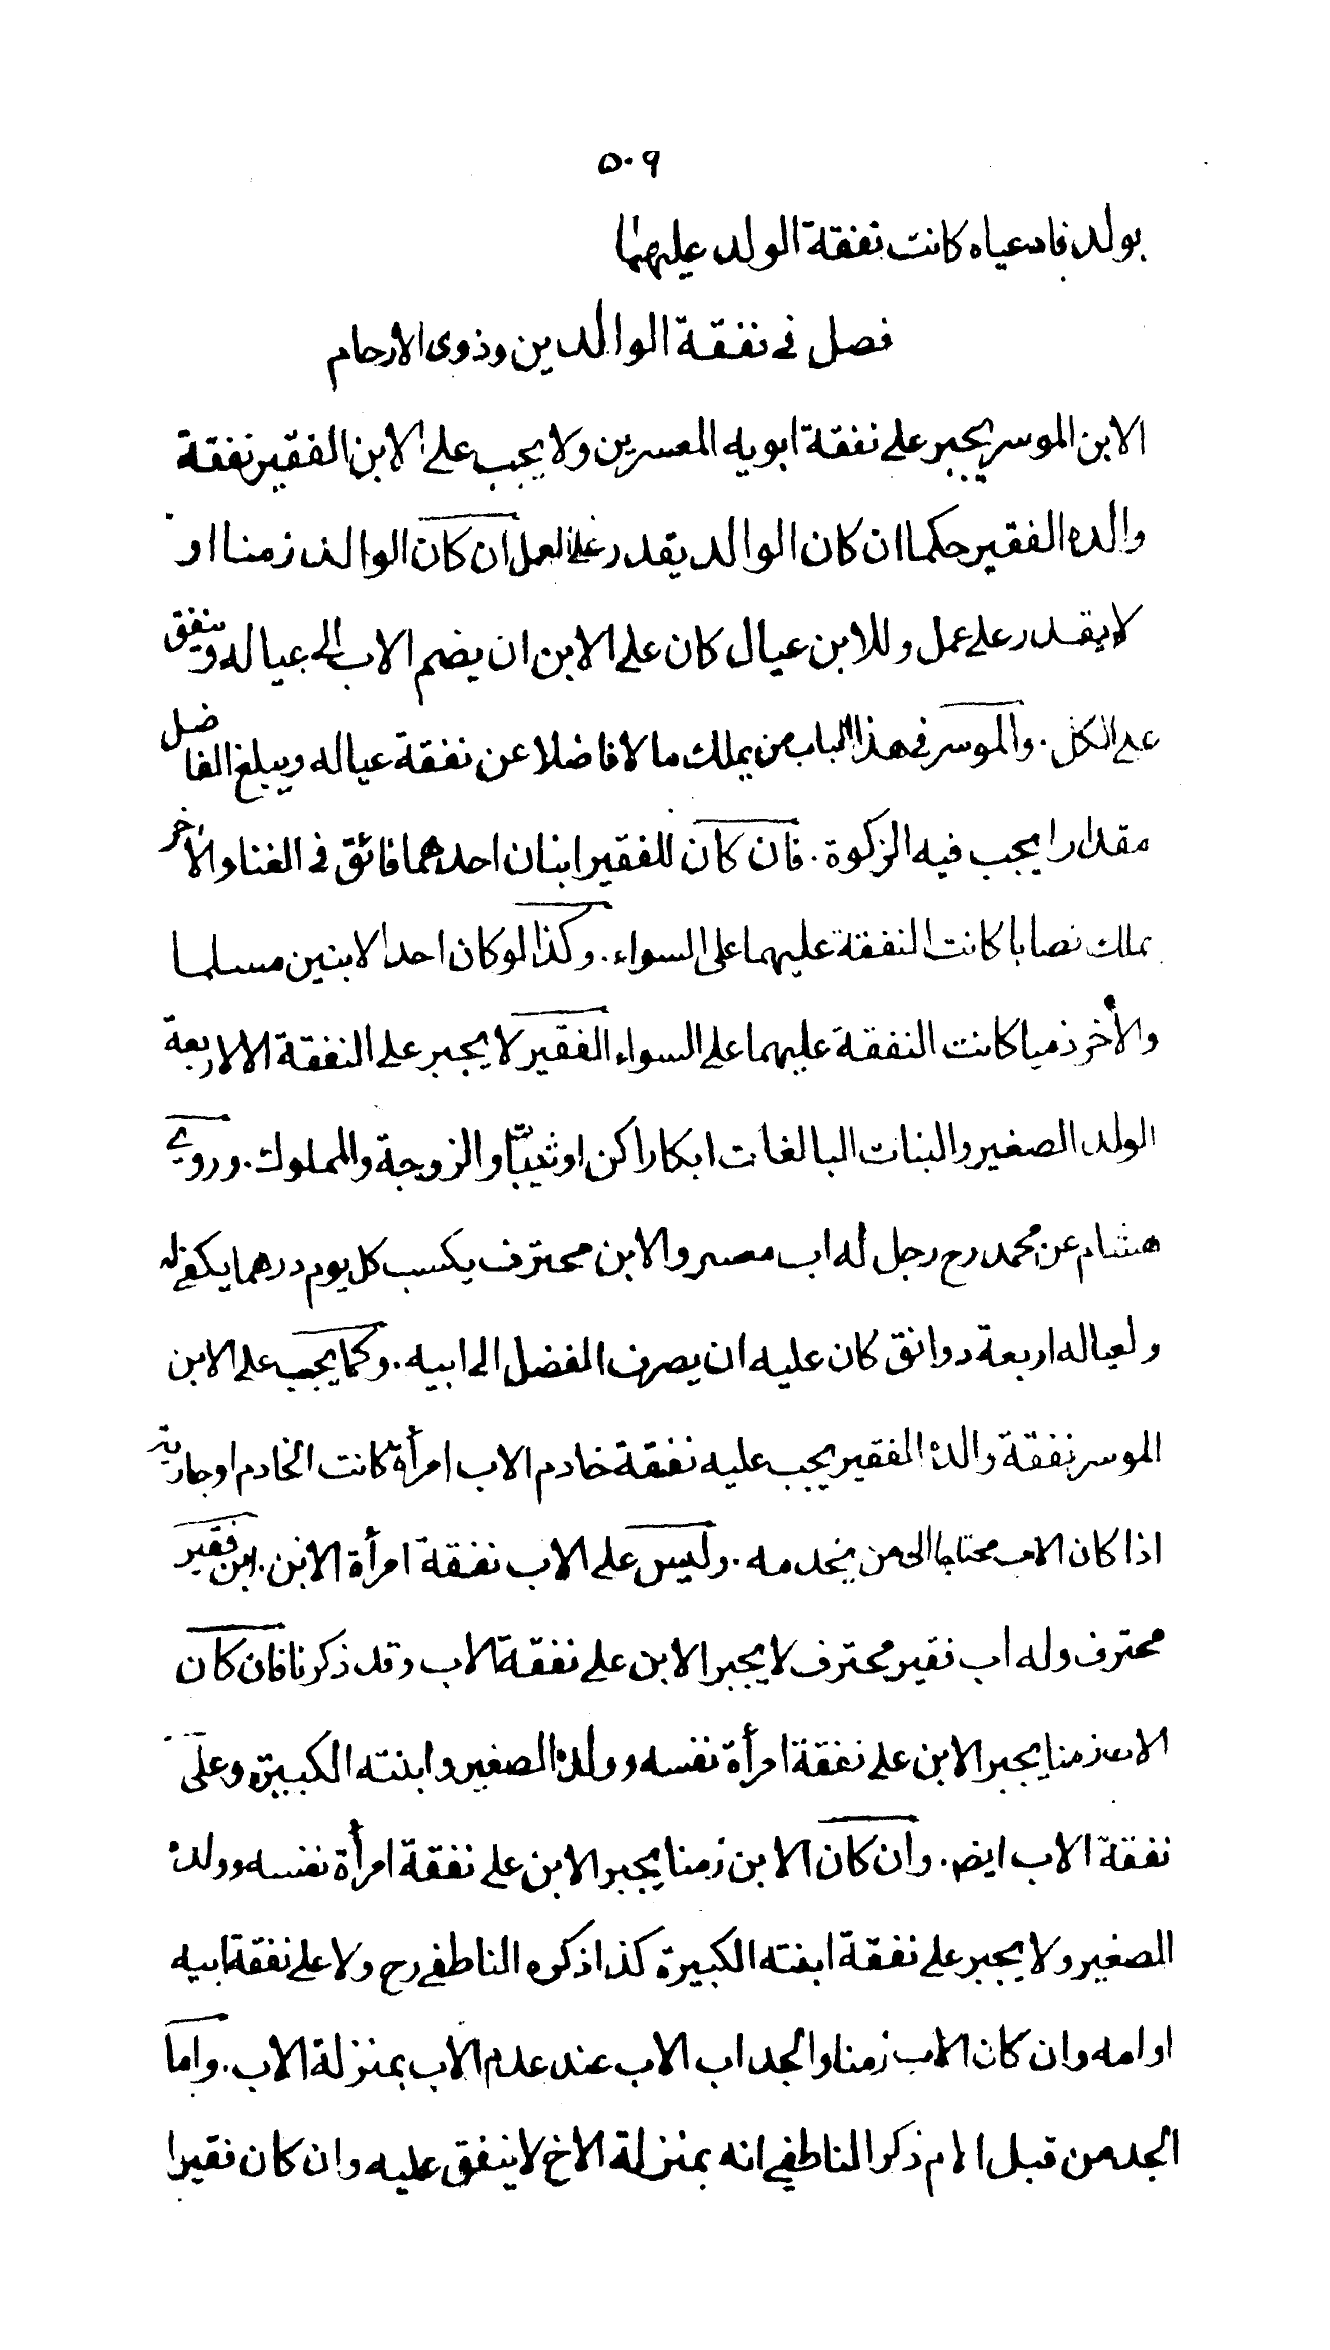 ۵۰۹
بولد فادعياه كانت نفقة الولد عليهما
فصل فى نفقة الوالدين وذوى الارحام
الابن الموسر يجبر على نفقة ابويه المعسرين ولا يجب على الابن الفقير نفقة
والده الفقير حكما ان كان الوالد يقدر على العمل ان كان الوالد زمنا او
لا يقدر على عمل وللابن عيال كان على الابن ان يضم الاب الى عياله وينفق
على الكل. والموسر فى هذا الباب من يملك مالا فاضلا عن نفقة عياله ويبلغ الفاضل
مقدارا يجب فيه الزكوة. فان كان للفقير ابنان احدهما فائق فى الغنا والأخر
يملك نصابا كانت النفقة عليهما على السواء. وكذا لو كان احد الابنين مسلما
والأخر ذميا كانت النفقة عليهما على السواء الفقير لا يجبر على النفقة الا لاربعة
الولد الصغير والبنات البالغات ابكارا كن او ثيبا والزوجة والمملوك. وروى
هشام عن محمد رح رجل له اب معسر والابن محترف يكسب كل يوم درهما يكفى له
ولعياله اربعة دوانق كان عليه ان يصرف الفضل الى ابيه. وكما يجب على الابن
الموسر نفقة والده الفقير يجب عليه نفقة خادم الاب امرأة كانت الخادم او جارية
اذا كان الاب محتاجا الى من يخدمه. وليس على الاب نفقة امرأة الابن. ابن فقير
محترف وله اب فقير محترف لا يجبر الابن على نفقة الاب وقد ذكرنا فان كان
الاب زمنا يجبر الابن على نفقة امرأة نفسه وولده الصغير وابنته الكبيرة وعلى
نفقة الاب ايض. وان كان الابن زمنا يجبر الابن على نفقة امرأة نفسه وولده
الصغير ولا يجبر على نفقة ابنته الكبيرة كذا ذكره الناطفى رح ولا على نفقة ابيه
او امه وان كان الاب زمنا والجد اب الاب عند عدم الاب بمنزلة الاب. واما
الجد من قبل الام ذكر الناطفى انه بمنزلة الاخ لا ينفق عليه وان كان فقيرا